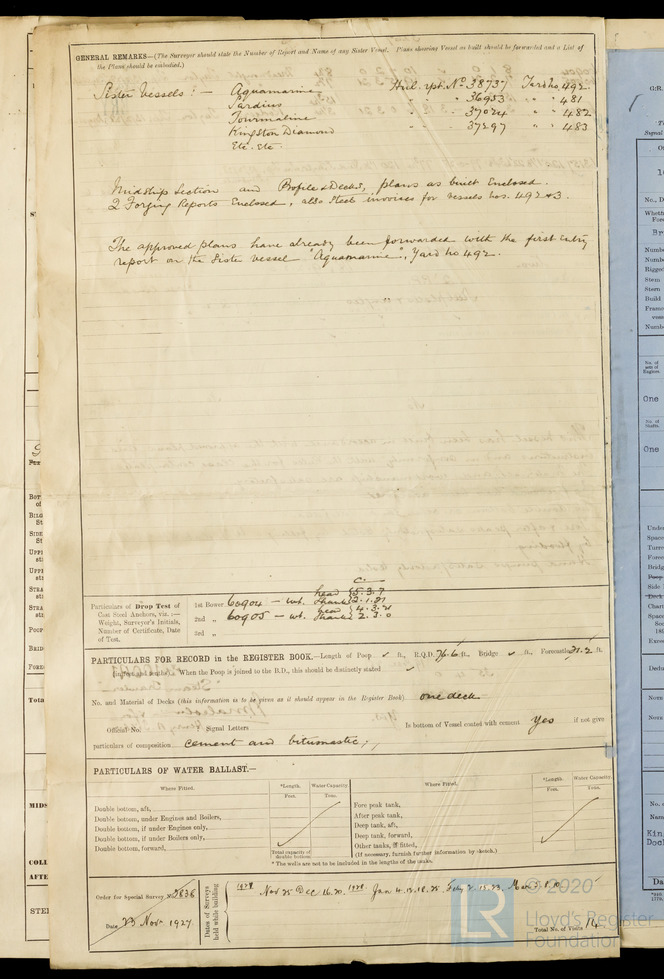 GENERAL REMARKS—(The Surveyor should state the Number of Report and Name of any Sister Vessel. Plans showing Vessel as built should be forwarded and a List of
the Plans should be embodied.)
Sister Vessels:— Aquamarine Hull rpt. No. 38737 Yard no. 492.
Sardius " " " 36953 " " 481
Tourmaline " " " 37024 " " 482
Kingston Diamond " " " 37297 " " 483
Etc. Etc.
Midship Section and Profile & Decks, plans as built Enclosed.
2 Forging Reports Enclosed, also Steel invoices for vessels nos. 492 & 3.
The approved plans have already been forwarded with the first Entry
report on the Sister vessel "Aquamarine", Yard no 492.
Particulars of Drop Test of
Cast Steel Anchors, viz.:—
Weight, Surveyor's Initials,
Number of Certificate, Date
of Test.
1st Bower 60904 — wt. head 5.3.7 Shank 2.1.21
2nd „ 60905 — wt. head 4.3.21 Shank 2.3.0
3rd „
PARTICULARS FOR RECORD in the REGISTER BOOK.—Length of Poop ✓ ft., R.Q.D. 76.6 ft., Bridge ✓ ft., Forecastle 21.2 ft.
(in feet and tenths). When the Poop is joined to the B.D., this should be distinctly stated ✓
No. and Material of Decks (this information is to be given as it should appear in the Register Book) one deck
Official No. Signal Letters Is bottom of Vessel coated with cement Yes if not give
particulars of composition cement and bitumastic;
PARTICULARS OF WATER BALLAST.—
Where Fitted. *Length. Water Capacity. Where Fitted. *Length. Water Capacity.
Feet. Tons. Feet. Tons.
Double bottom, aft, Fore peak tank,
Double bottom, under Engines and Boilers, After peak tank,
Double bottom, if under Engines only, Deep tank, aft,
Double bottom, if under Boilers only, Deep tank, forward,
Double bottom, forward, Other tanks, if fitted,
Total capacity of double bottom (If necessary, furnish further information by sketch.)
* The wells are not to be included in the lengths of the tanks.
Order for Special Survey No. 5636
Date 23 Nov. 1927
Dates of Surveys held while building
Nov 25 Dec 16.20. 1928 Jan 4.13.18.25. Feby 2.15.23. Mar 3.8.10
Total No. of Visits 14
© 2020
LR
Lloyd's Register
Foundation
One
One